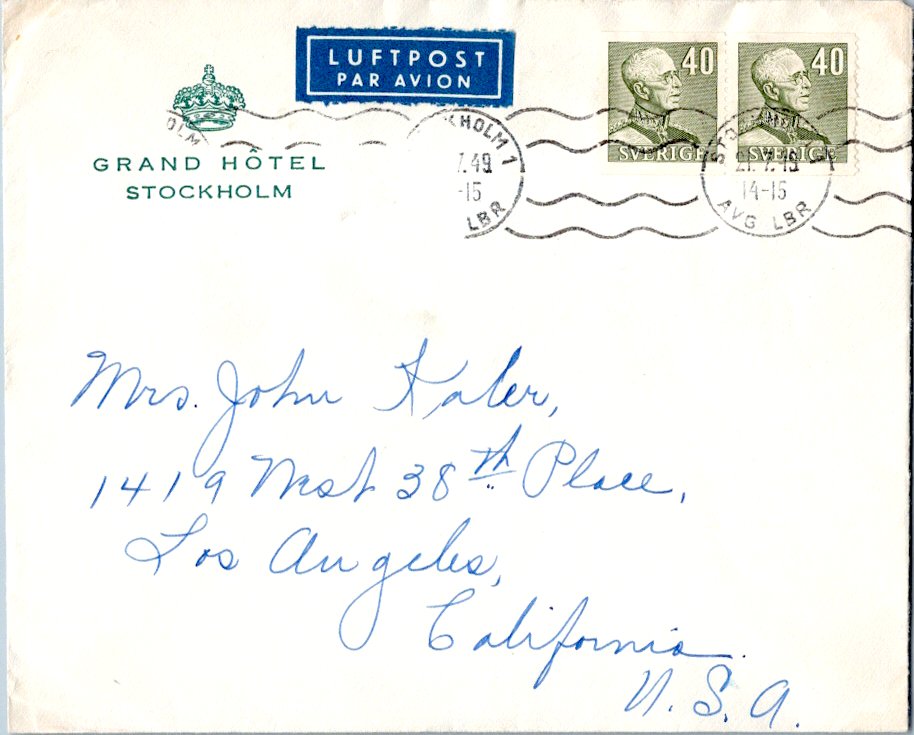 LUFTPOST
PAR AVION
GRAND HÔTEL
STOCKHOLM
40
SVERIGE
40
SVERIGE
OLM
KHOLM 1
7.49
-15
LBR
STOCKHOLM 1
21.7.49
14-15
AVG LBR
Mrs. John Kaler,
1419 West 38th Place,
Los Angeles,
California.
U.S.A.